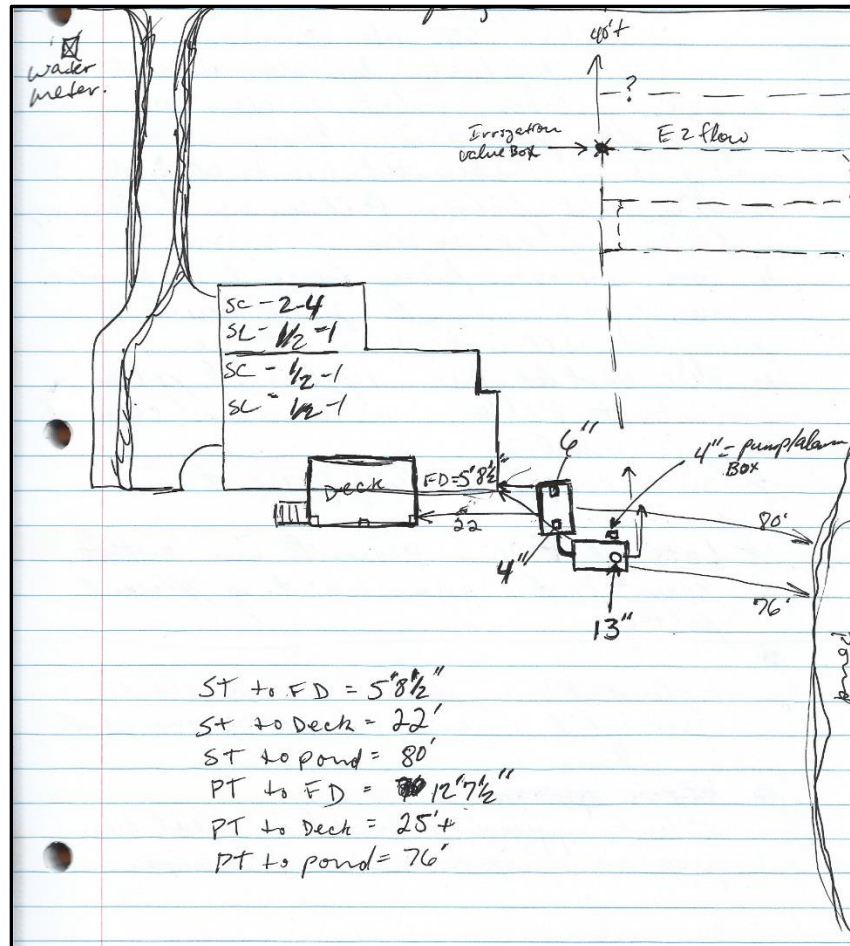 40'+
water
meter.
?
Irrigation
valve Box
EZ flow
SC - 2-4
SL - 1/2 - 1
SC - 1/2 - 1
SL - 1/2 - 1
6"
4" = pump/alarm
Box
Deck
FD=5'8½"
22
80'
4"
76'
13"
Pond
ST to FD = 5'8½"
St to Deck = 22'
ST to pond = 80'
PT to FD = 12'7½"
PT to Deck = 25'+
PT to pond = 76'